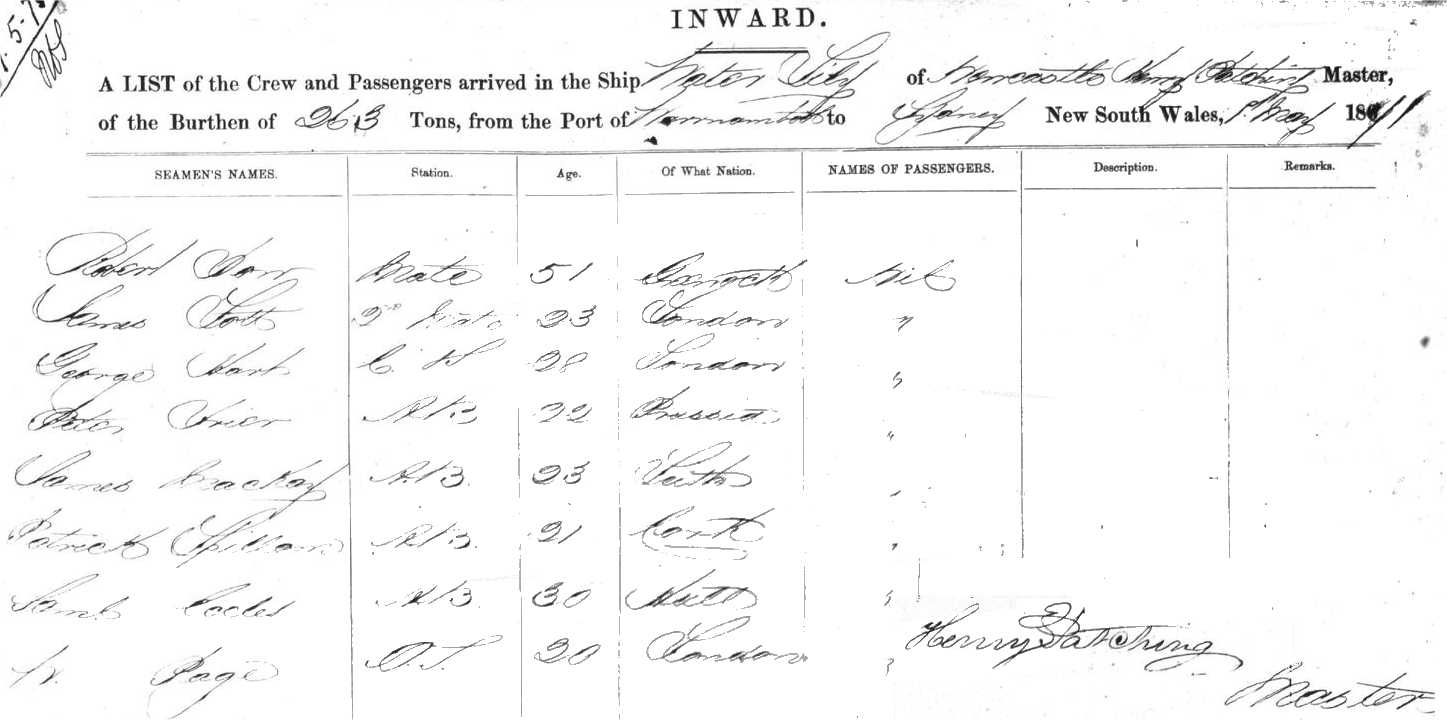 INWARD.
A LIST of the Crew and Passengers arrived in the Ship Water Lily of Newcastle Henry Patching Master,
of the Burthen of 263 Tons, from the Port of Warrnambool to Sydney New South Wales, 1 May 1871
SEAMEN'S NAMES. Station. Age. Of What Nation. NAMES OF PASSENGERS. Description. Remarks.
Robert Mate 51 Greenock Nil
James 2nd Mate 23 London "
George Hart C & S 28 London "
Peter AB 22 Prussia "
James Mackay AB 23 Leith "
Patrick AB 21 Cork "
Saml Eccles AB 30 Hull "
W. Page O.S. 20 London "
Henry Patching
Master